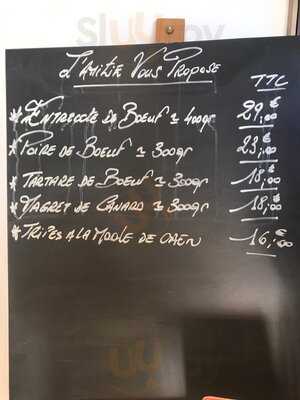 L'Amitié Vous Propose
TTC
* Entrecote de Boeuf ≃ 400gr 29,€00
* Poire de Boeuf ≃ 300gr 23,€00
* Tartare de Boeuf ≃ 300gr 18,€00
* Magret de Canard ≃ 300gr 18,€00
* Tripes a la Mode de Caen 16,€00